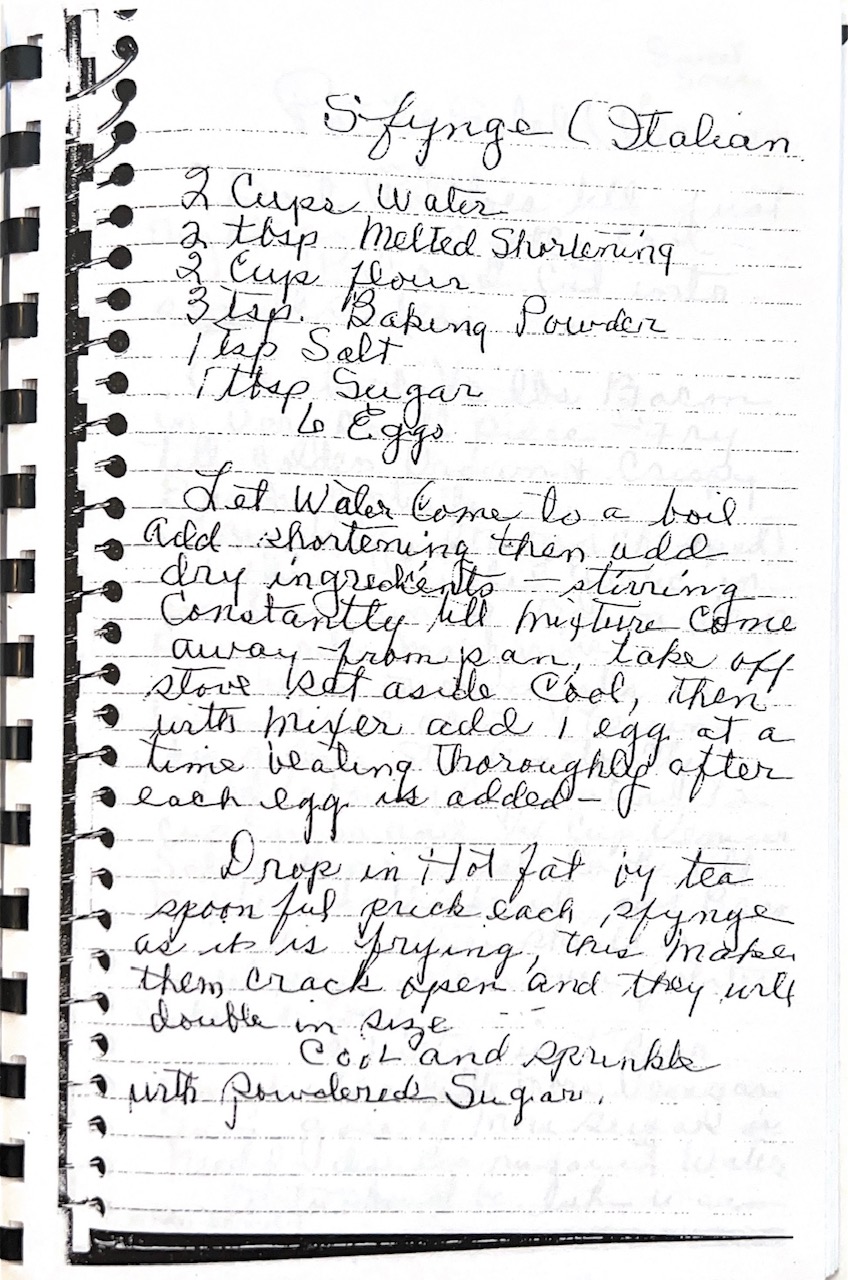 Sfynge (Italian
2 Cups Water
2 tbsp Melted Shortening
2 Cup flour
3 tsp. Baking Powder
1 tsp Salt
1 tbsp Sugar
6 Eggs
Let Water Come to a boil
add shortening then add
dry ingredients - stirring
Constantly till mixture Come
away from pan, take off
stove set aside Cool, then
with mixer add 1 egg at a
time beating thoroughly after
each egg is added -
Drop in Hot fat by tea
spoon ful prick each sfynge
as it is frying, this make
them crack open and they will
double in size
Cool and sprinkle
with powdered Sugar.